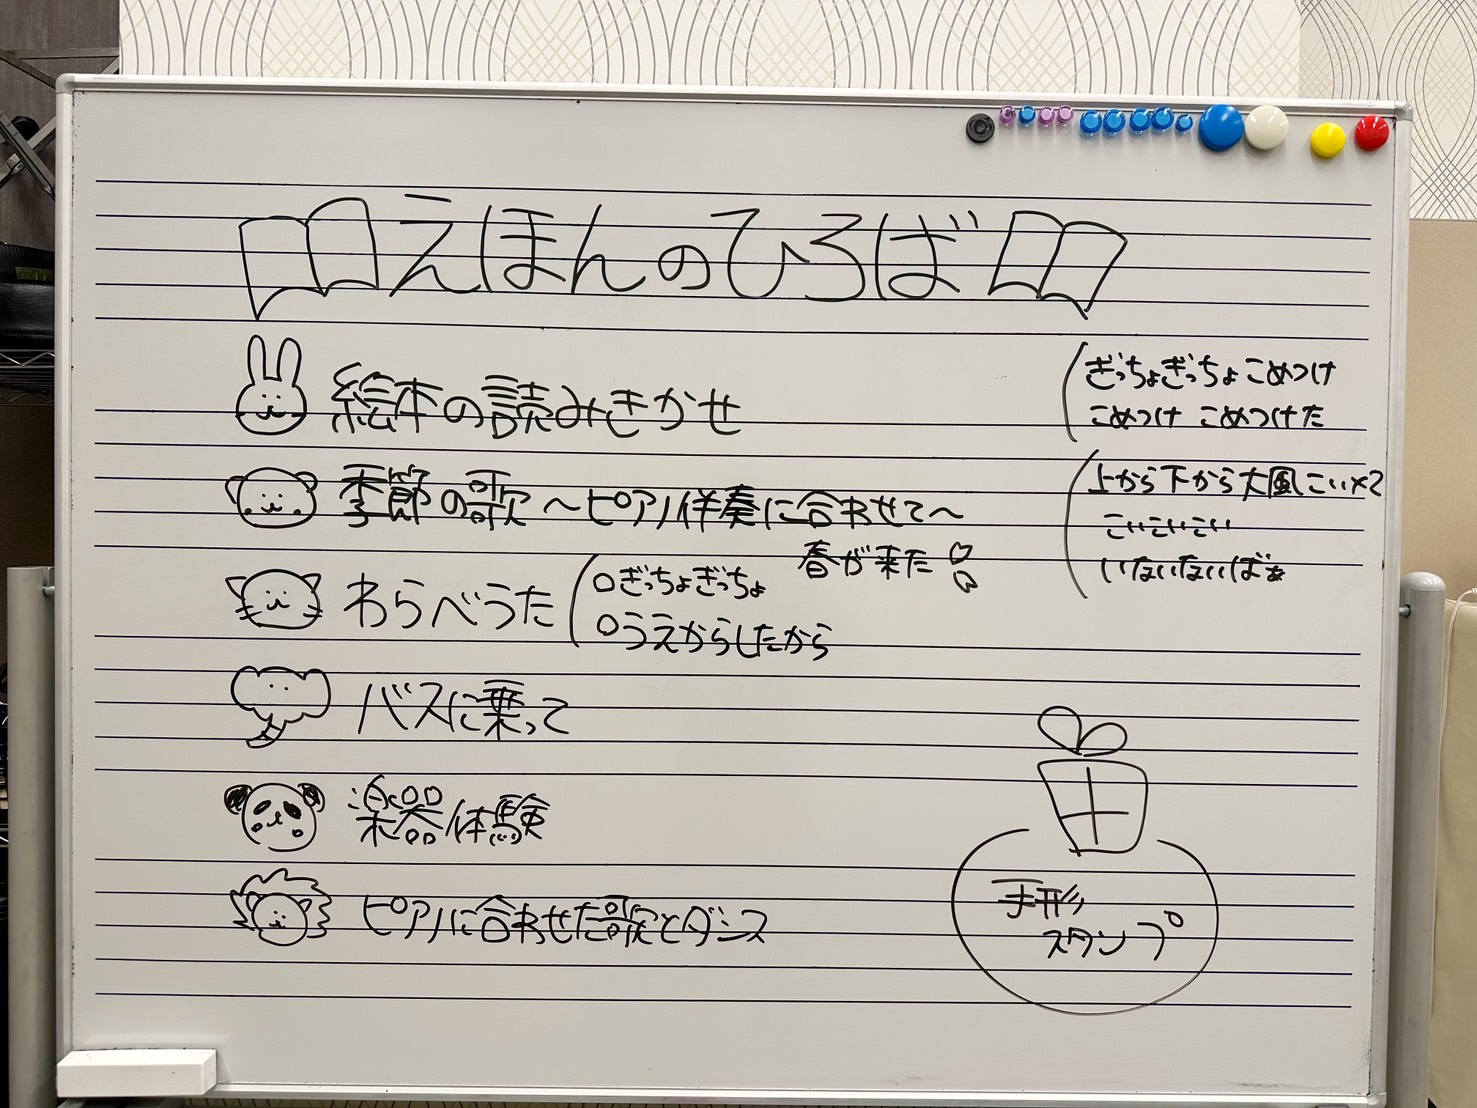 えほんのひろば
絵本の読みきかせ
季節の歌 〜ピアノ伴奏に合わせて〜
春が来た
わらべうた
○ぎっちょぎっちょ
○うえからしたから
バスに乗って
楽器体験
ピアノに合わせた歌とダンス
ぎっちょぎっちょ こめつけ
こめつけ こめつけた
上から下から大風こい×2
こいこいこい
いないいないばぁ
手形
スタンプ